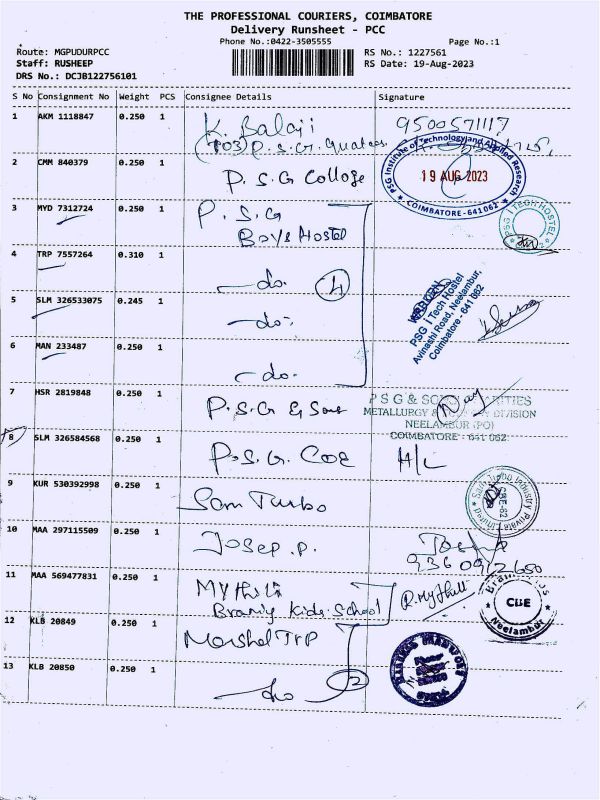 THE PROFESSIONAL COURIERS, COIMBATORE
Delivery Runsheet - PCC
Phone No.:0422-3505555
Page No.:1
Route: MGPUDURPCC
RS No.: 1227561
Staff: RUSHEEP
RS Date: 19-Aug-2023
DRS No.: DCJB122756101
S No Consignment No Weight PCS Consignee Details Signature
1 AKM 1118847 0.250 1 K. Balaji 9500571117
(703) P.S.G.
2 CMM 840379 0.250 1 P.S.G College
PSG Institute of Technology and Applied Research
19 AUG 2023
COIMBATORE - 641 062
3 MYD 7312724 0.250 1 P.S.G
Boys Hostel
PSG iTECH HOSTEL
4 TRP 7557264 0.310 1 -do. 4
5 SLM 326533075 0.245 1 -do-
WARDEN
PSG iTech Hostel
Avinashi Road, Neelambur,
Coimbatore - 641 062
6 MAN 233487 0.250 1 -do.
7 HSR 2819848 0.250 1 P.S.G & Sons
P S G & SONS CHARITIES
METALLURGY & DIVISION
NEELAMBUR (PO)
COIMBATORE - 641 062
8 SLM 326584568 0.250 1 P.S.G. COE H/L
9 KUR 530392998 0.250 1 Sam Turbo
Sam Turbo Industry Private Limited
CBE-62
10 MAA 297115509 0.250 1 Josep. P.
11 MAA 569477831 0.250 1 Mythili R. Mythili
Brainy Kids School
CBE
Neelambur
12 KLB 20849 0.250 1 Marshal Trp
13 KLB 20850 0.250 1 -do 2